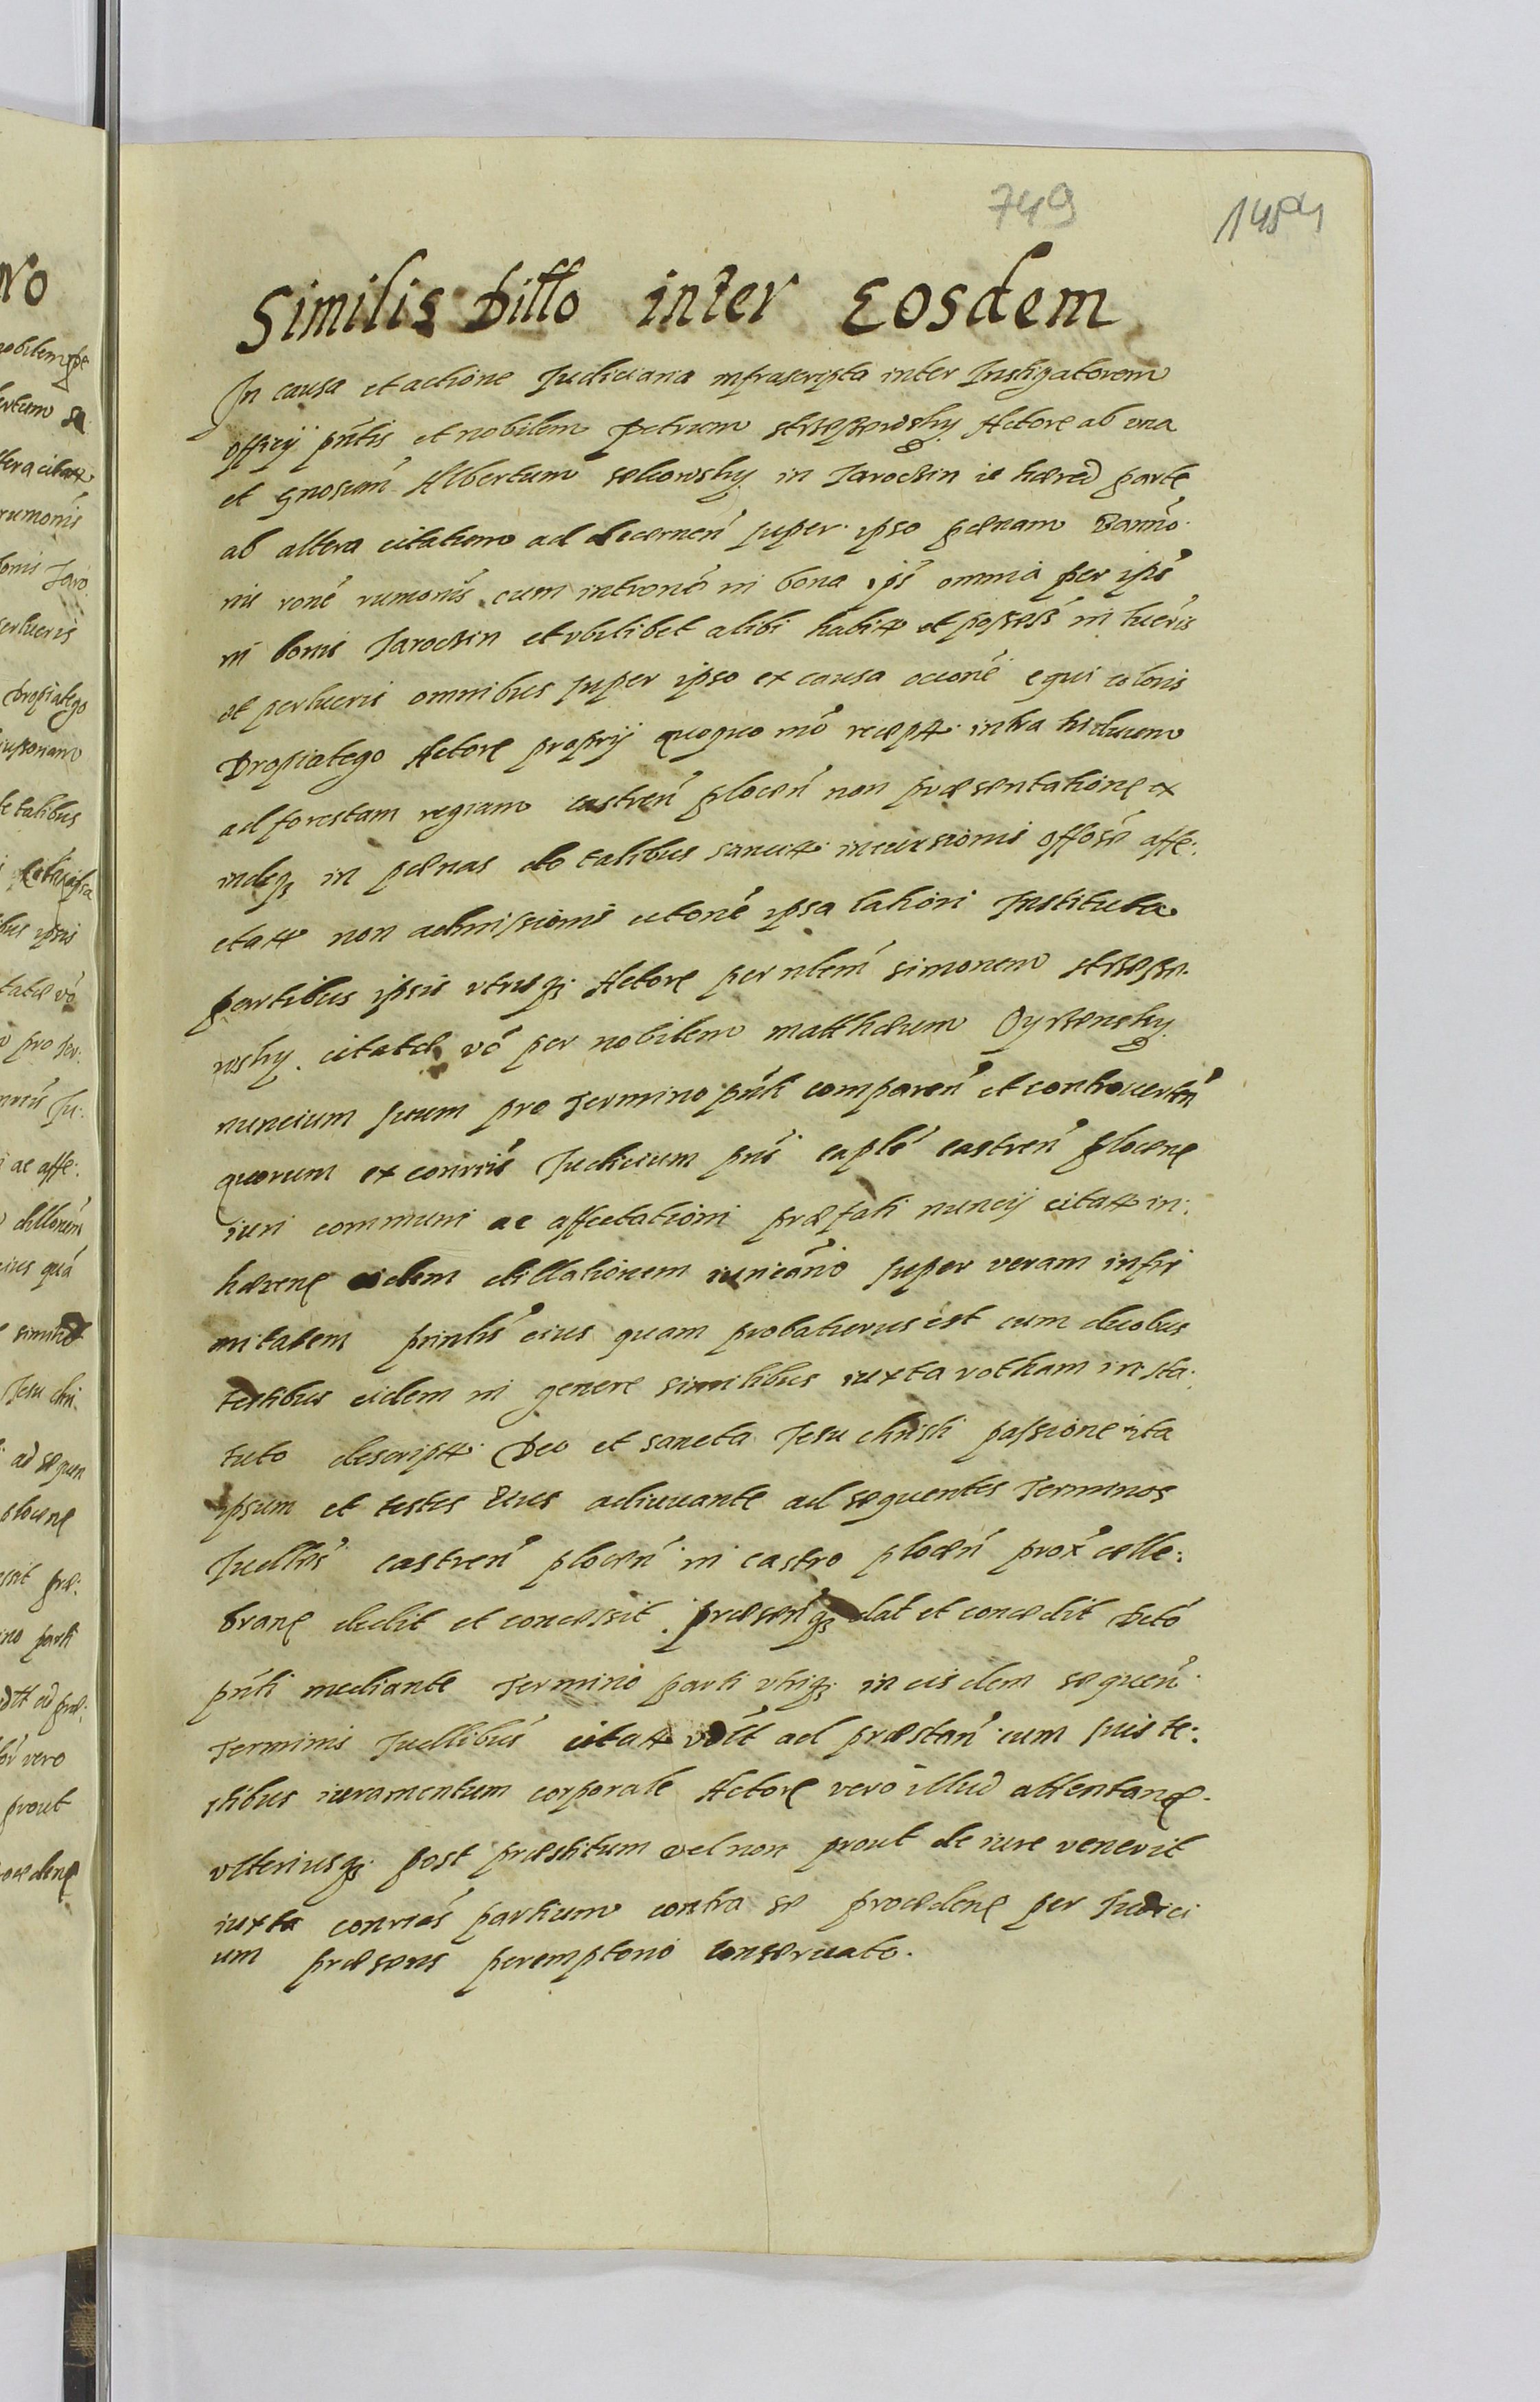 749
1484
Similis Ditto inter Eosdem
In causa et actione Judiciaria infrascripta inter Instigatorem
officij pñtis et nobilem Petrum Actore ab una
et Gnosum Albertum in Jaroczin hæred parte
ab altera citatum ad decernen super ipso pænam Banno
nis rone rumonis cum introne in bona ips omnia per ips
in bonis Jaroczin et ubilibet alibi habit et possess in lucris
et perlucris omnibus super ipso ex causa ocione equi coloris
Dropiatego Actore proprij quoquo mo recept intra triduum
ad forestam regiam castren plocen non præsentatione ex
indeq in pænas de talibus sancit incursionis offose affe:
ctat non admissionis citone ipsa latiori Instituta
partibus ipsis utrisq Actore per nlem Simonem
wsky citata vo per nobilem Matthæum
nuncium suum pro Termino pñti comparen et controverten
quorum ex conviis Judicium pñs caplé castren plocen
iuri communi ac affectationi præfati nuncij citat in:
hæren eidem dillationem iuricanio super veram infir
mitatem prinlis eius quam probaturus est cum duobus
testibus eidem in genere similibus iuxta rotham in sta:
tuto descript Deo et sancta Jesu christi passione ita
ipsum et testes Eius adiuuante ad sequentes Terminos
Judllés castren plocen in castro plocen prox celle:
bran dedit et concessit præsenq dat et concedit Decto
pñti mediante Termino parti utriq in eisdem sequen
Terminis Judllibus citat ad præstan cum suis te:
stibus iuramentum corporale Actore vero illud attentan
ulteriusq post præstitum vel non prout de iure venerit
iuxta convias partium contra se proceden per Judici
um præsens peremptorio conseruato.